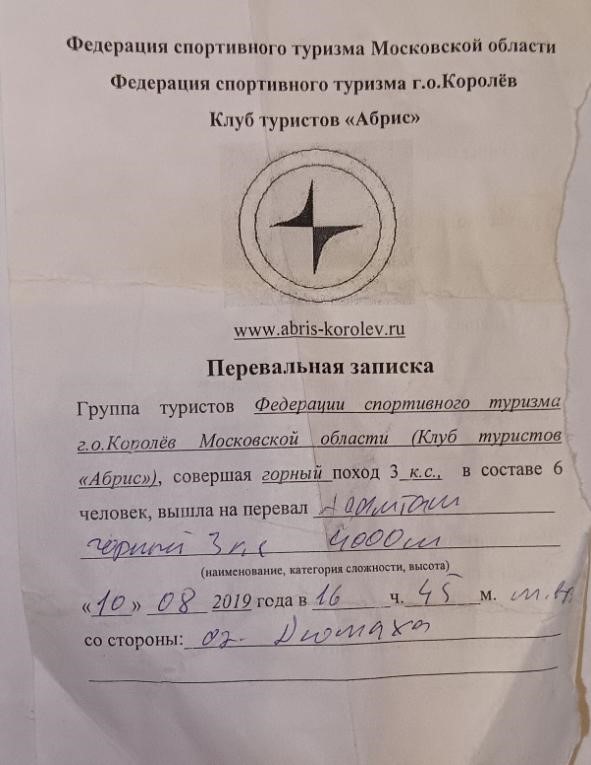 Федерация спортивного туризма Московской области
Федерация спортивного туризма г.о.Королёв
Клуб туристов «Абрис»
www.abris-korolev.ru
Перевальная записка
Группа туристов Федерации спортивного туризма
г.о.Королёв Московской области (Клуб туристов
«Абрис»), совершая горный поход 3 к.с., в составе 6
человек, вышла на перевал
3 к.с 4000м
(наименование, категория сложности, высота)
«10» 08 2019 года в 16 ч. 45 м.
со стороны: оз.